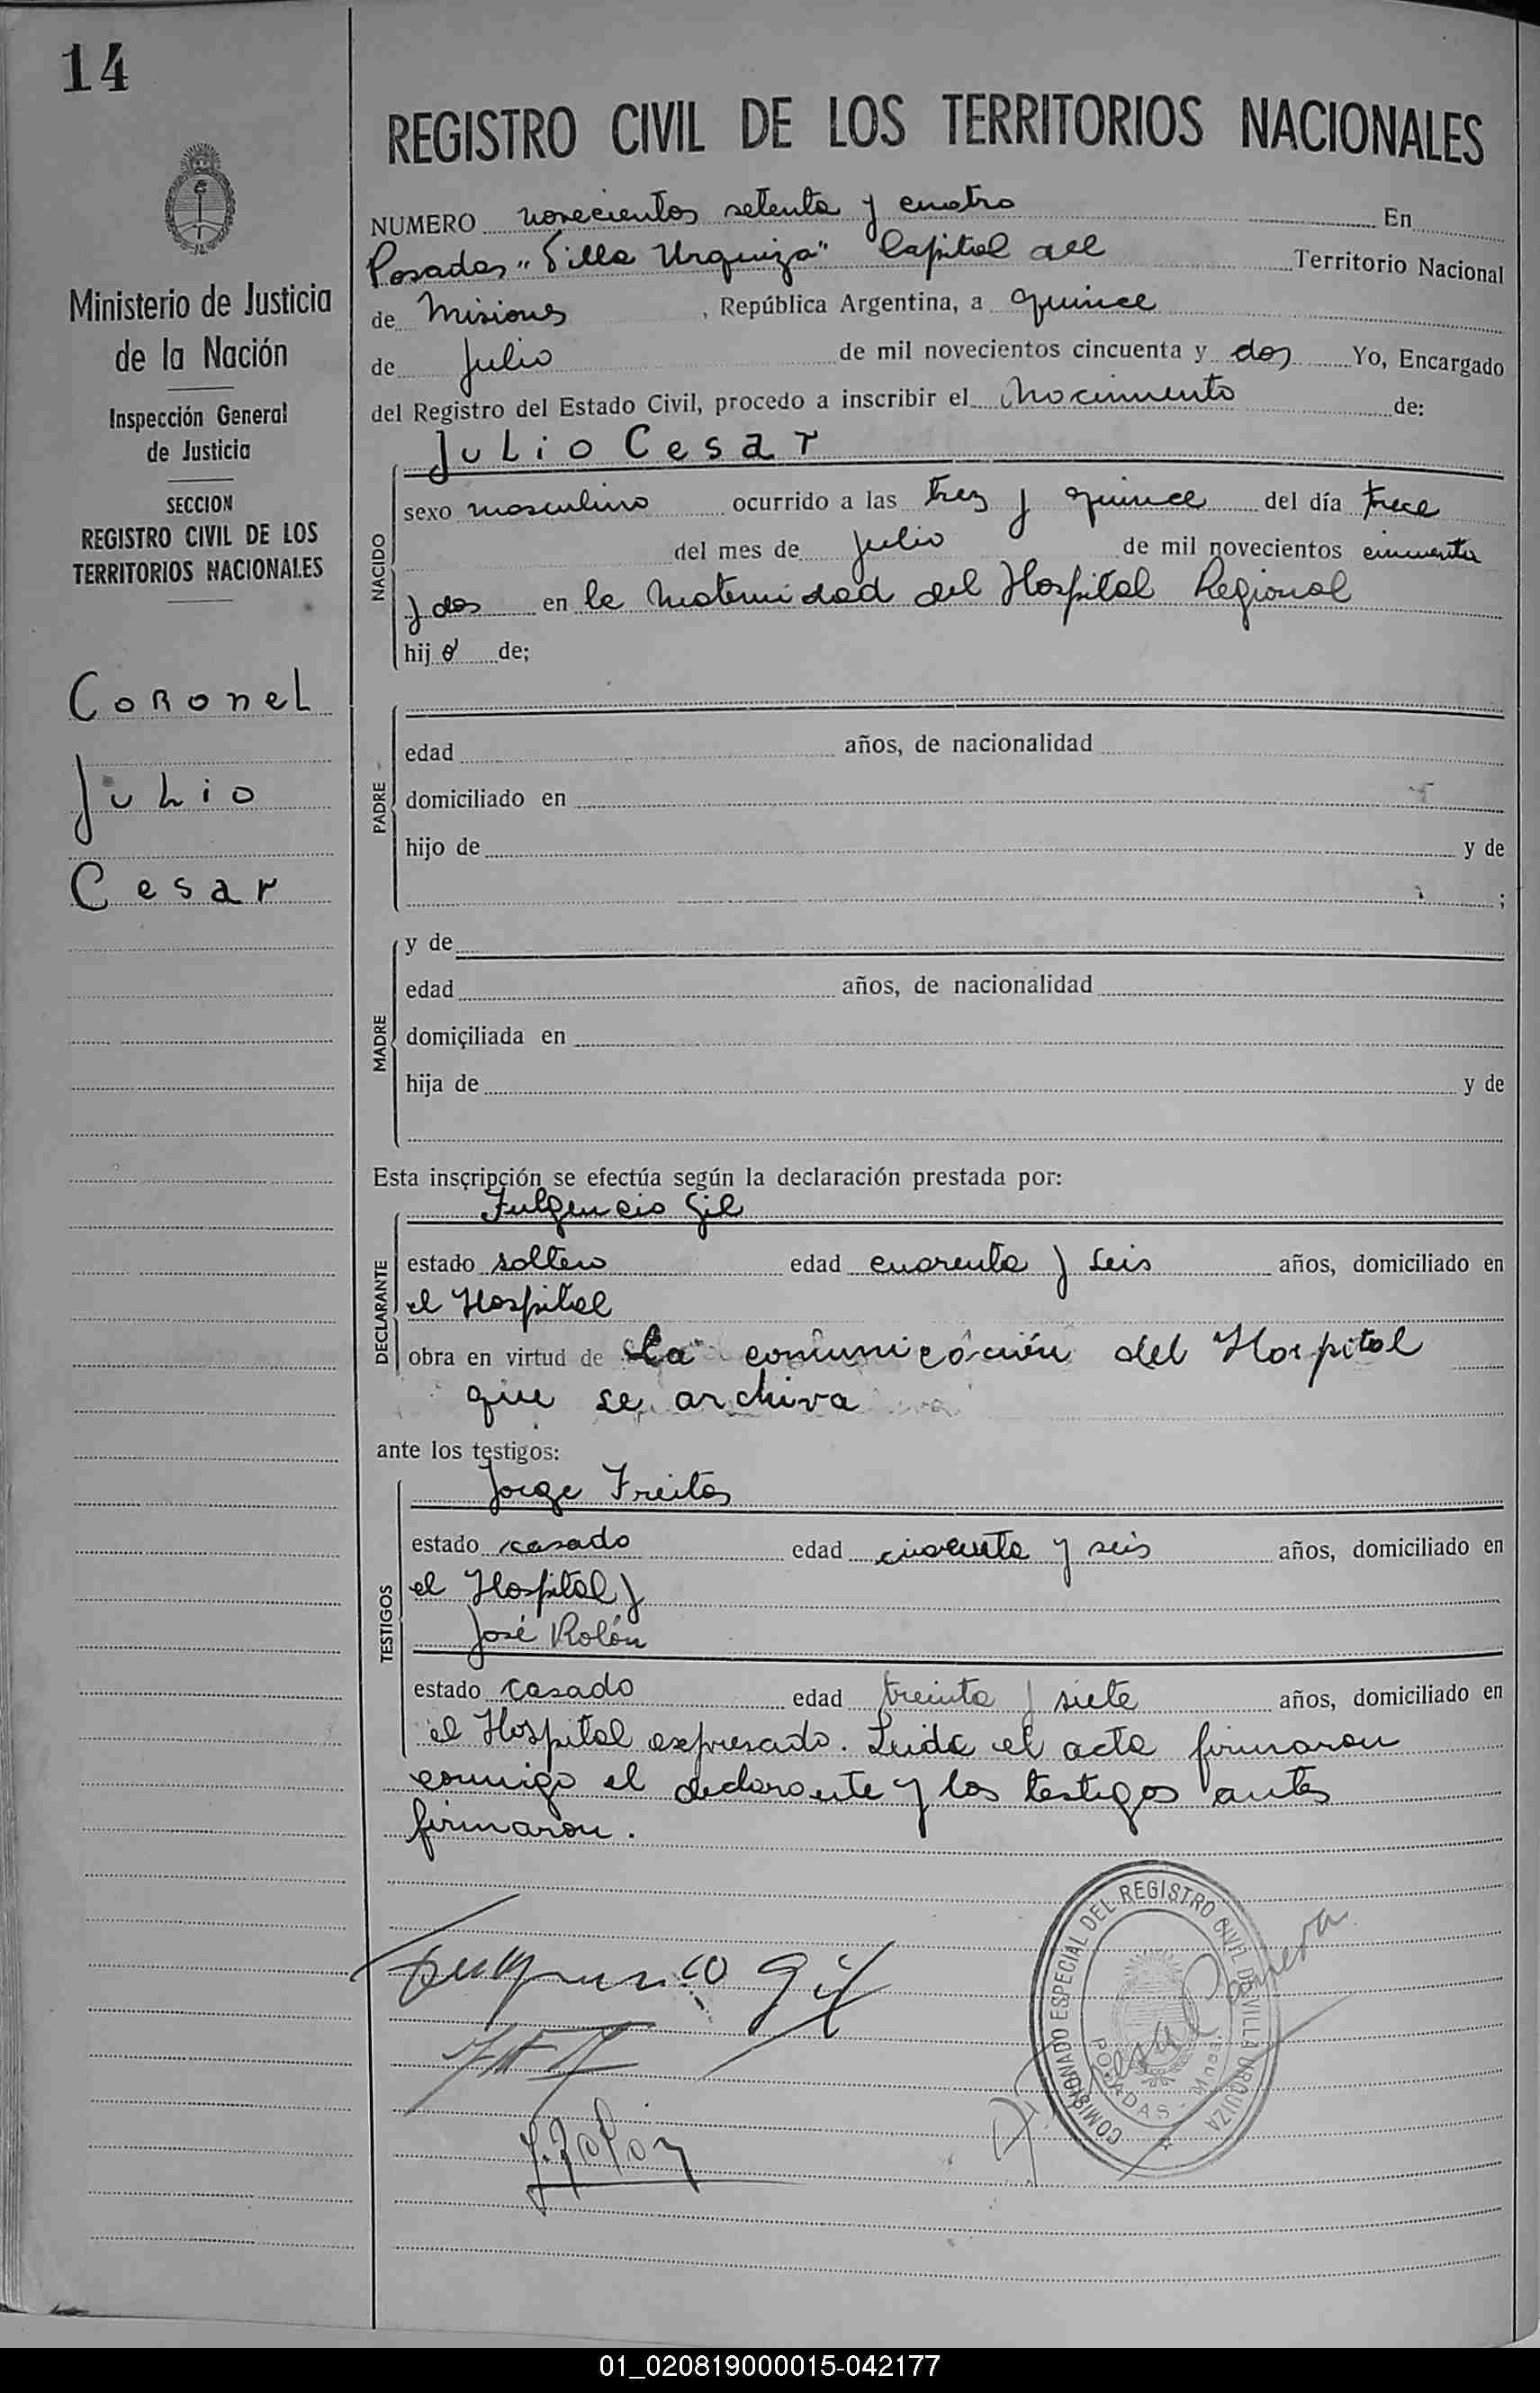 14
REGISTRO CIVIL DE LOS TERRITORIOS NACIONALES
Ministerio de Justicia
de la Nación
Inspección General
de Justicia
SECCION
REGISTRO CIVIL DE LOS
TERRITORIOS NACIONALES
Coronel
Julio
Cesar
NUMERO novecientos setenta y cuatro En
Posadas "Villa Urquiza" Capital del Territorio Nacional
de Misiones, República Argentina, a quince
de Julio de mil novecientos cincuenta y dos Yo, Encargado
del Registro del Estado Civil, procedo a inscribir el Nacimiento de:
NACIDO
Julio Cesar
sexo masculino ocurrido a las tres y quince del día trece
del mes de Julio de mil novecientos cincuenta
y dos en la Maternidad del Hospital Regional
hijo de;
PADRE
edad años, de nacionalidad
domiciliado en
hijo de y de
;
MADRE
y de
edad años, de nacionalidad
domiciliada en
hija de y de
Esta inscripción se efectúa según la declaración prestada por:
DECLARANTE
Fulgencio Gil
estado soltero edad cuarenta y seis años, domiciliado en
el Hospital
obra en virtud de la comunicación del Hospital
que se archiva
ante los testigos:
TESTIGOS
Jorge Freitas
estado casado edad cuarenta y seis años, domiciliado en
el Hospital y
José Rolón
estado casado edad treinta y siete años, domiciliado en
el Hospital expresado. Leida el acta firmaron
conmigo el declarante y los testigos antes
firmaron.
Fulgencio Gil
J. Rolón
COMISIONADO ESPECIAL DEL REGISTRO CIVIL DE VILLA URQUIZA
POSADAS - Mnes.
01_020819000015-042177